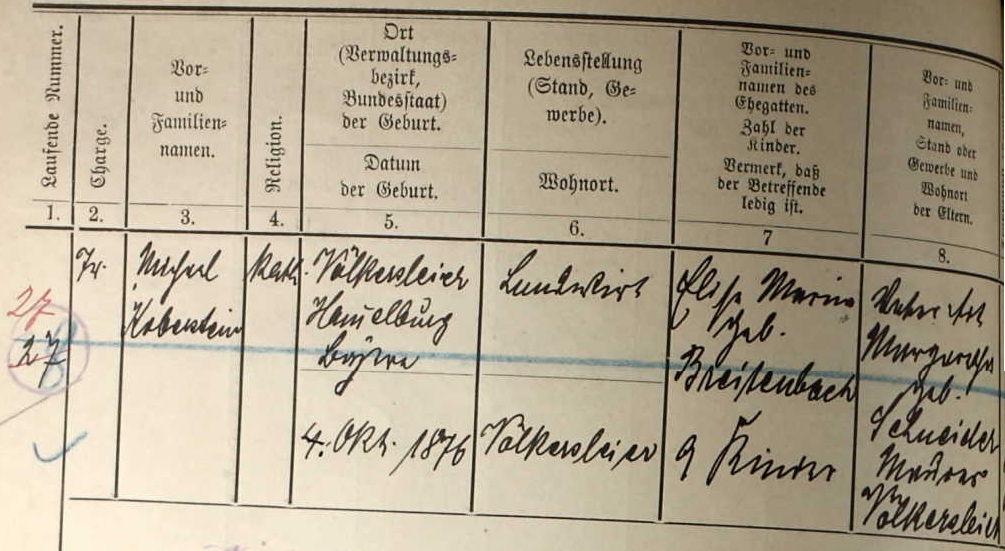 Laufende Nummer.
Charge.
Vor-
und
Familien-
namen.
Religion.
Ort
(Verwaltungs-
bezirk,
Bundesstaat)
der Geburt.
Datum
der Geburt.
Lebensstellung
(Stand, Ge-
werbe).
Wohnort.
Vor- und
Familien-
namen des
Ehegatten.
Zahl der
Kinder.
Vermerk, daß
der Betreffende
ledig ist.
Vor- und
Familien-
namen,
Stand oder
Gewerbe und
Wohnort
der Eltern.
1. 2. 3. 4. 5. 6. 7 8.
27
27
Michael
Koberstein
kath.
Völkersleier
Hammelburg
Bayern
4. Okt. 1876
Landwirt
Völkersleier
Elisa Maria
geb.
Breitenbach
9 Kinder
Vater
Margaretha
geb.
Schneider
Maurer
Völkersleier